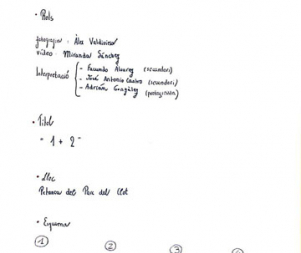 • Rols
fotògraf: Àlex Valdivieso
vídeo: Miranda Sánchez
Interpretació
- Facundo Álvarez (secundari)
- José Antonio Castro (secundari)
- Adrián González (protagonista)
• Títol
" 1 + 2 "
• Lloc
Petanca del Parc del Clot
• Esquema
① ② ③